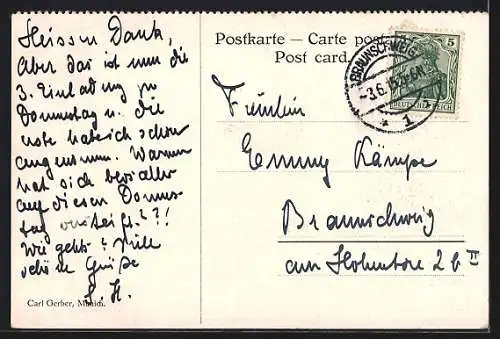 Heissen Dank,
Aber das ist nun die
3. Einladung zu
Donnerstag u. die
erste habe ich schon
angenommen. Warum
hat sich bei aller
auf diesen Donners-
tag versteift??!
Wie gehts? Viele
schöne Grüße
H.
Carl Gerber, Münch.
Postkarte — Carte postale
Post card.
BRAUNSCHWEIG
-3.6.
* 1
5
DEUTSCHES REICH
Fräulein
Emmy Kämpe
Braunschweig
am Hohentore 2 b II